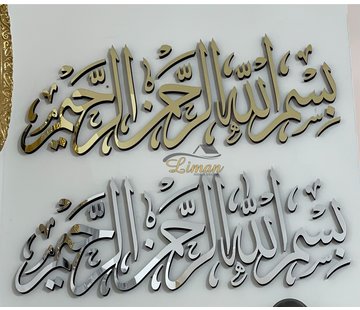 بِسْمِ اللهِ الرَّحْمٰنِ الرَّحِيْمِ
Liman
بِسْمِ اللهِ الرَّحْمٰنِ الرَّحِيْمِ